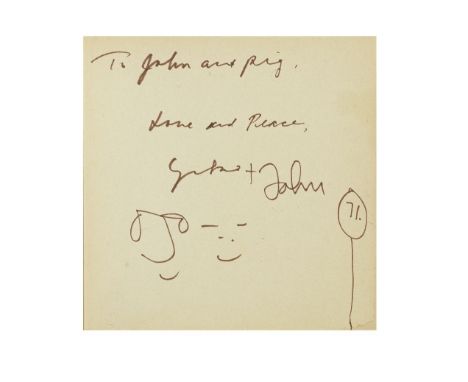 To John and Pig.
Love and Peace,
Yoko + John
71.